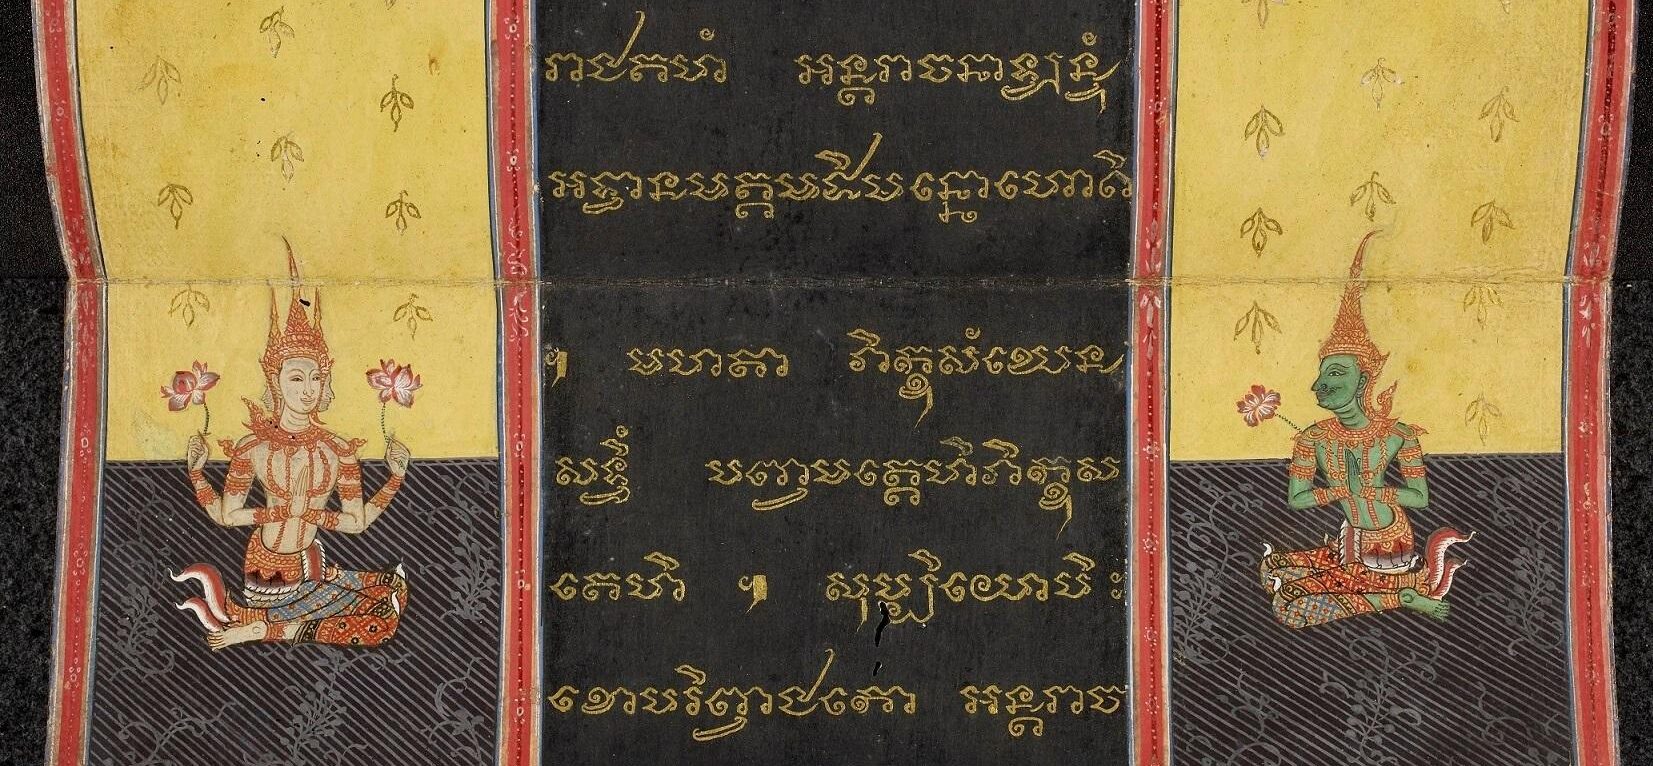 រាជគហំ អន្តរាចនាឡន្ទំ
អទ្ធានមគ្គបដិបន្នោហោតិ
ฯ មហតា ភិក្ខុសំឃេន
សទ្ធិំ បញ្ចមត្តេហិភិក្ខុស
តេហិ ฯ សុប្បិយោបិ
ខោបរិព្វាជកោ អន្តរាច